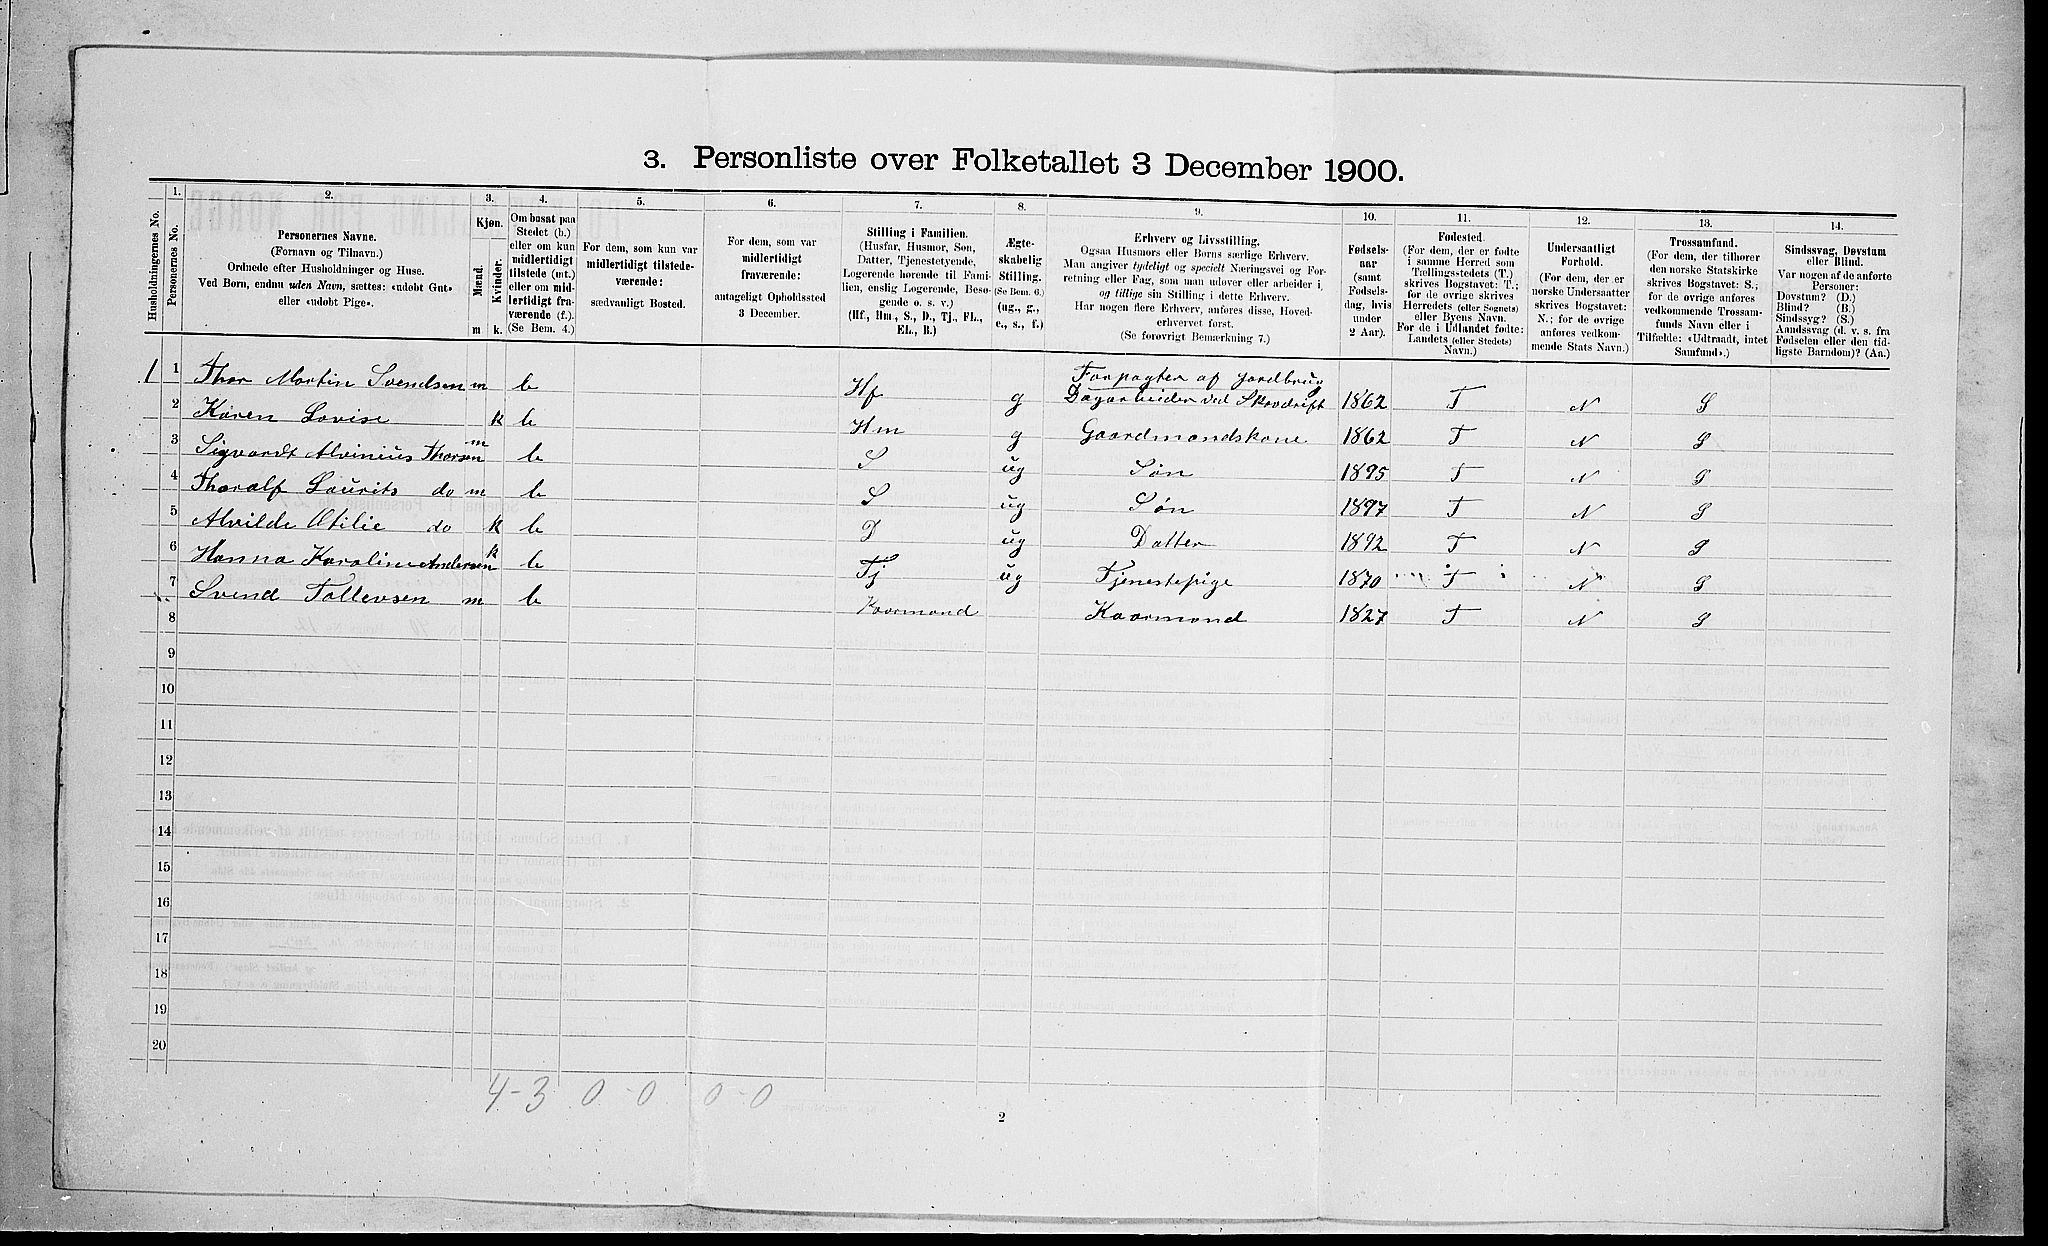 3. Personliste over Folketallet 3 December 1900.
Husholdningernes No.
1.
Personernes No.
2.
Personernes Navne.
(Fornavn og Tilnavn.)
Ordnede efter Husholdninger og Huse.
Ved Børn, endnu uden Navn, sættes: «udobt Gut»
eller «udobt Pige».
3.
Kjøn.
Mænd.
Kvinder.
m k.
4.
Om bosat paa
Stedet (b.)
eller om kun
midlertidigt
tilstede (mt.)
eller om mid-
lertidigt fra-
værende (f.).
(Se Bem. 4.)
5.
For dem, som kun var
midlertidigt tilstede-
værende:
sædvanligt Bosted.
6.
For dem, som var
midlertidigt
fraværende:
antageligt Opholdssted
3 December.
7.
Stilling i Familien.
(Husfar, Husmor, Søn,
Datter, Tjenestetyende,
Logerende hørende til Fami-
lien, enslig Logerende, Besø-
gende o. s. v.)
(Hf., Hm., S., D., Tj., FL.,
EL., B.)
8.
Ægte-
skabelig
Stilling.
(Se Bem. 6.)
(ug., g.,
e., s., f.)
9.
Erhverv og Livsstilling.
Ogsaa Husmors eller Børns særlige Erhverv.
Man angiver tydeligt og specielt Næringsvei og For-
retning eller Fag, som man udover eller arbeider i,
og tillige sin Stilling i dette Erhverv.
Har nogen flere Erhverv, anføres disse, Hoved-
erhvervet først.
(Se forøvrigt Bemærkning 7.)
10.
Fødsels-
aar
(samt
Fødsels-
dag, hvis
under
2 Aar).
11.
Fødested.
(For dem, der er fødte
i samme Herred som
Tællingsstedets (T.)
skrives Bogstavet: T.;
for de øvrige skrives
Herredets (eller Sognets)
eller Byens Navn.
For de i Udlandet fødte:
Landets (eller Stedets)
Navn.)
12.
Undersaatligt
Forhold.
(For dem, der er
norske Undersaatter
skrives Bogstavet:
N.; for de øvrige
anføres vedkom-
mende Stats Navn.)
13.
Trossamfund.
(For dem, der tilhører
den norske Statskirke
skrives Bogstavet: S.;
for de øvrige anføres
vedkommende Trossam-
funds Navn eller i
Tilfælde: «Udtraadt, intet
Samfund».)
14.
Sindssvag, Døvstum
eller Blind.
Var nogen af de anførte
Personer:
Døvstum? (D.)
Blind? (B.)
Sindssyg? (S.)
Aandssvag (d. v. s. fra
Fødselen eller den tid-
ligste Barndom)? (Aa.)
1 1 Thor Martin Svendsen m b Hf g Forpagter af Jordbrug
Dagarbeider ved Skovdrift 1862 T N S
2 Karen Lovise k b Hm g Gaardmandskone 1862 T N S
3 Sigvardt Alvinius Thorsen m b S ug Søn 1895 T N S
4 Thoralf Laurits do m b S ug Søn 1897 T N S
5 Alvilde Otilie do k b D ug Datter 1892 T N S
6 Hanna Karoline Andersen k b Tj ug Tjenestepige 1870 T N S
7 Svend Tollevsen m b Kaarmand Kaarmand 1827 T N S
8
9
10
11
12
13
14
15
16
17
18
19
20
4-3 0-0 0-0
2